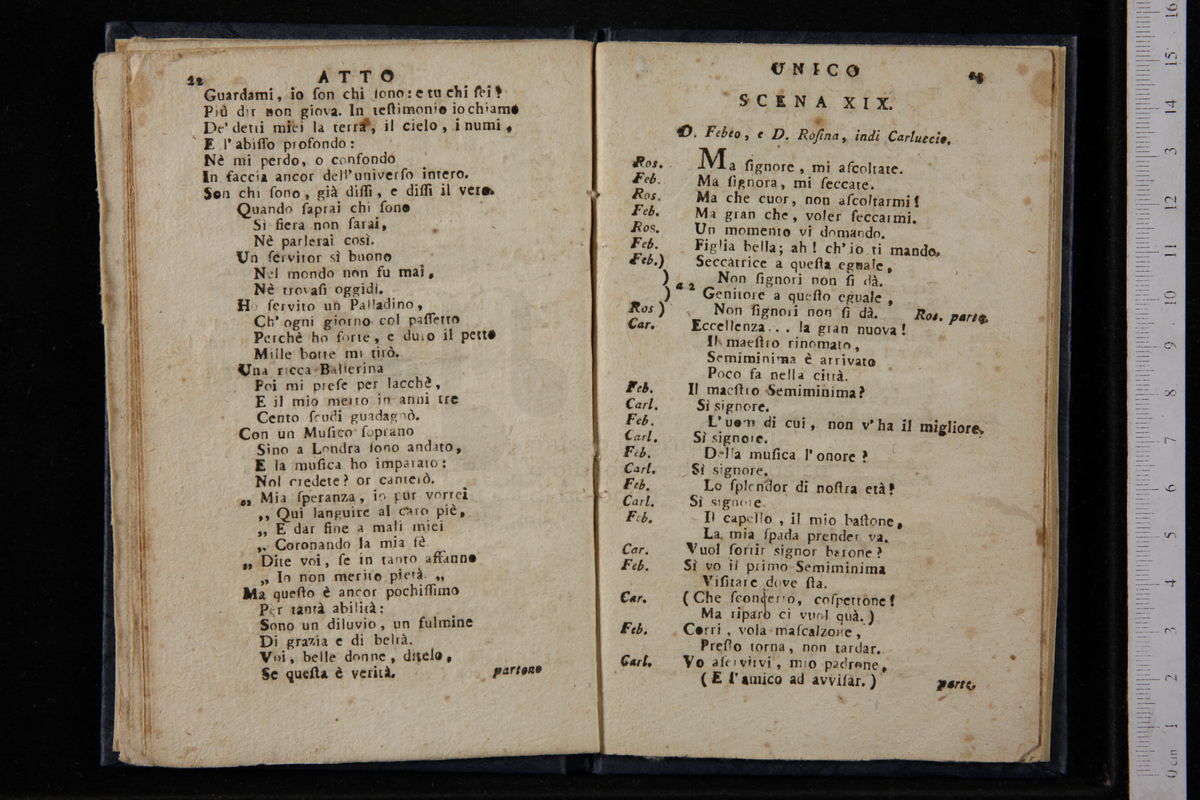 22
ATTO
Guardami, io ſon chi ſono: e tu chi ſei?
Più dir non giova. In teſtimonio io chiamo
De' detti miei la terra, il cielo, i numi,
E l'abiſſo profondo:
Nè mi perdo, o confondo
In faccia ancor dell'univerſo intero.
Son chi ſono, già diſſi, e diſſi il vero.
Quando ſaprai chi ſono
Sì fiera non ſarai,
Nè parlerai così.
Un ſervitor sì buono
Nel mondo non fu mai,
Nè trovaſi oggidì.
Ho ſervito un Palladino,
Ch'ogni giorno col paſſetto
Perchè ho forte, e duro il petto
Mille botte mi tirò.
Una ricca Ballerina
Poi mi preſe per lacchè,
E il mio merto in anni tre
Cento ſcudi guadagnò.
Con un Muſico ſoprano
Sino a Londra ſono andato,
E la muſica ho imparato:
Nol credete? or canterò.
„ Mia ſperanza, io pur vorrei
„ Qui languire al caro piè,
„ E dar fine a mali miei
„ Coronando la mia fè.
„ Dite voi, ſe in tanto affanno
„ Io non merito pietà. „
Ma queſto è ancor pochiſſimo
Per tantà abilità:
Sono un diluvio, un fulmine
Di grazia e di beltà.
Voi, belle donne, ditelo,
Se queſta è verità. partono
UNICO
23
SCENA XIX.
D. Febeo, e D. Roſina, indi Carluccio.
Ros. Ma ſignore, mi aſcoltate.
Feb. Ma ſignora, mi ſeccate.
Ros. Ma che cuor, non aſcoltarmi!
Feb. Ma gran che, voler ſeccarmi.
Ros. Un momento vi domando.
Feb. Figlia bella; ah! ch'io ti mando.
Feb.) Seccatrice a queſta eguale,
) a 2 Non ſignori non ſi dà.
) Genitore a queſto eguale,
Ros) Non ſignori non ſi dà. Ros. parte.
Car. Eccellenza... la gran nuova!
Il maeſtro rinomato,
Semiminima è arrivato
Poco fa nella città.
Feb. Il maeſtro Semiminima?
Carl. Sì ſignore.
Feb. L'uom di cui, non v'ha il migliore,
Carl. Sì ſignore.
Feb. Della muſica l'onore?
Carl. Sì ſignore.
Feb. Lo ſplendor di noſtra età?
Carl. Sì ſignore.
Feb. Il capello, il mio baſtone,
La mia ſpada prender va.
Car. Vuol ſortir ſignor barone?
Feb. Sì vo il primo Semiminima
Viſitare dove ſta.
Car. (Che ſconcerto, coſpettone!
Ma riparo ci vuol quà.)
Feb. Corri, vola maſcalzone,
Preſto torna, non tardar.
Carl. Vo aſervirvi, mio padrone,
(E l'amico ad avviſar.) parte.